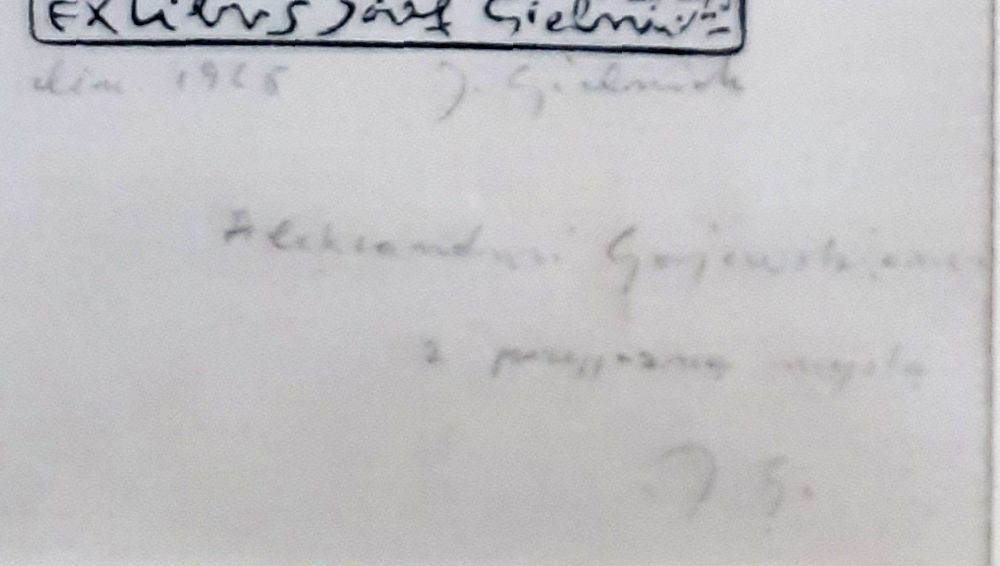 EX LIBRIS Józef Gielniak
lin. 1965 J. Gielniak
Aleksandrowi Gajewskiemu
z przyjazną myślą
J G.